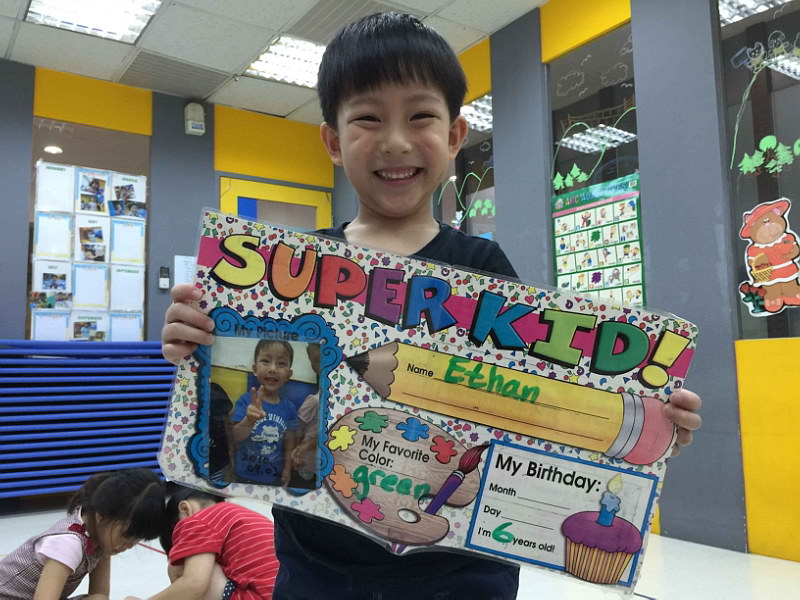 SUPER KID!
My Picture
Name Ethan
My Favorite
Color:
green
My Birthday:
Month
Day
I'm 6 years old!
ABC